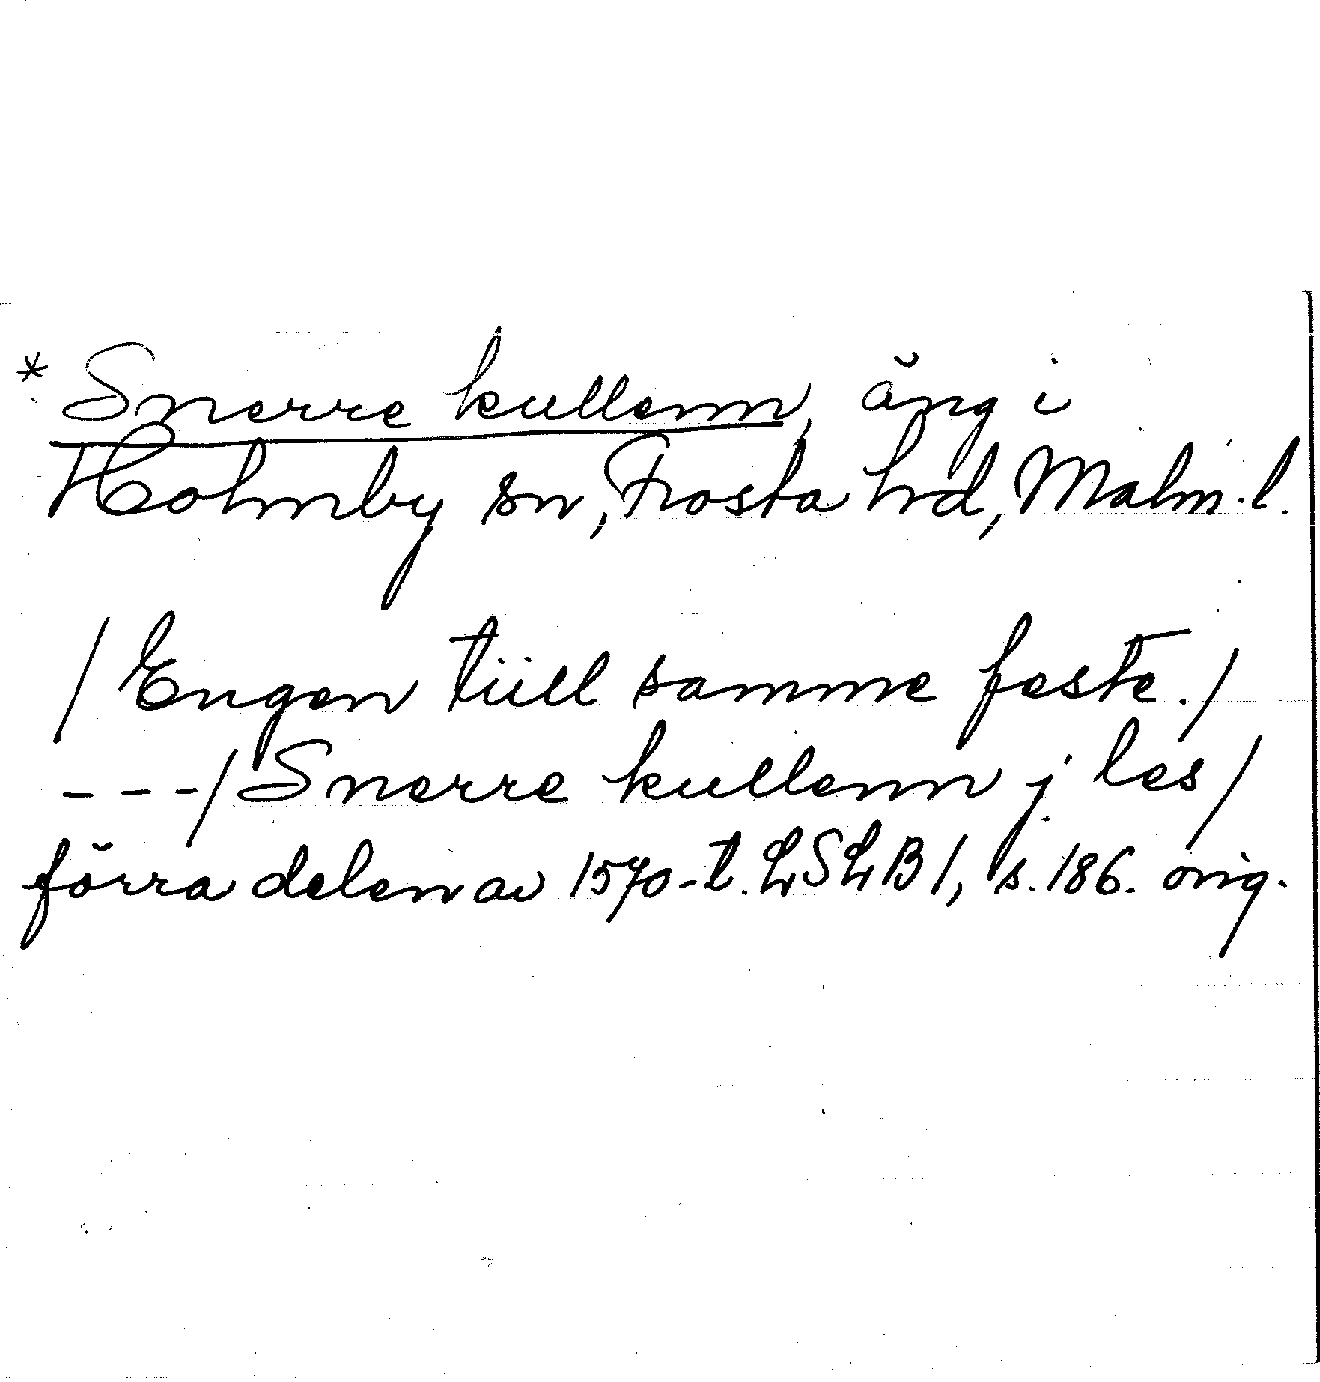 * Snerre kullenn, äng i
Holmby sn, Frosta hd, Malm. l.
/ Engen tiill samme feste. /
- - - / Snerre kullenn j les /
förra delen av 1570-t. LSLB 1, s. 186. orig.